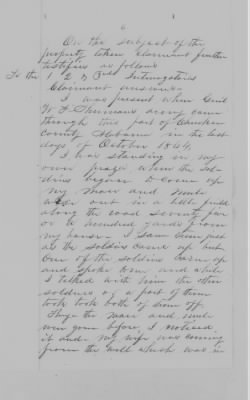 6
On the subject of the
property taken Claimant further
testifies as follows
To the 1 2 & 3rd Interrogatories
Claimant answers
I was present when Genl
W T Sherman's army came
through this part of Cherokee
County Alabama in the last
days of October 1864.
I was standing in my
own when the Sol-
diers began to come up
my Mare and Mule
were out in a little field
along the road seventy five
or a hundred yards from
my house. I saw them just
as the soldiers came up but
One of the Soldiers came up
and spoke to me and while
I talked with him the other
soldiers or a part of them
took both of them off.
the Mare and mule
were gone before I noticed
it and my wife was coming
from the well which was in